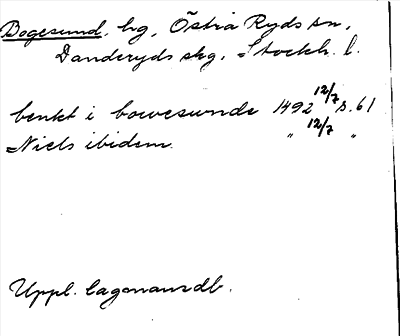 Bogesund, hg, Östra Ryds sn,
Danderyds skg, Stockh. l.
benkt i bowesunde 1492 12/7 s. 61
Niels ibidem. " 12/7 "
Uppl. lagmansdb.